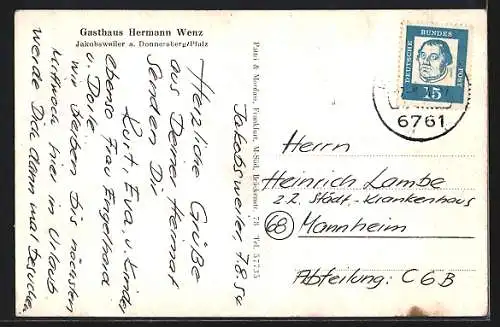 Gasthaus Hermann Wenz
Jakobsweiler a. Donnersberg/Pfalz
Jakobsweiler, 7.8.
Herzliche Grüße
aus Deiner Heimat
Senden Dir
Kurt, Eva, u. Kinder
ebenso Frau Engelhard
u. Dole.
wir bleiben bis nächsten
Mittwoch hier im Urlaub
werde Dich dann mal besuchen.
Frankfurt, M-Süd, Brückenstr. 78 Tel.
DEUTSCHE
BUNDES
POST
15
6761
Herrn
Heinrich Lambe
z.Z. Städt.-Krankenhaus
68 Mannheim
Abteilung: C6B